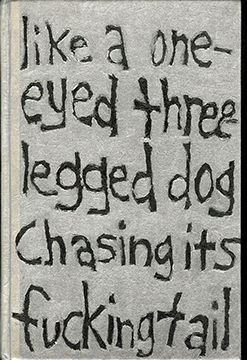 like a one-
eyed three
legged dog
Chasing its
fucking tail